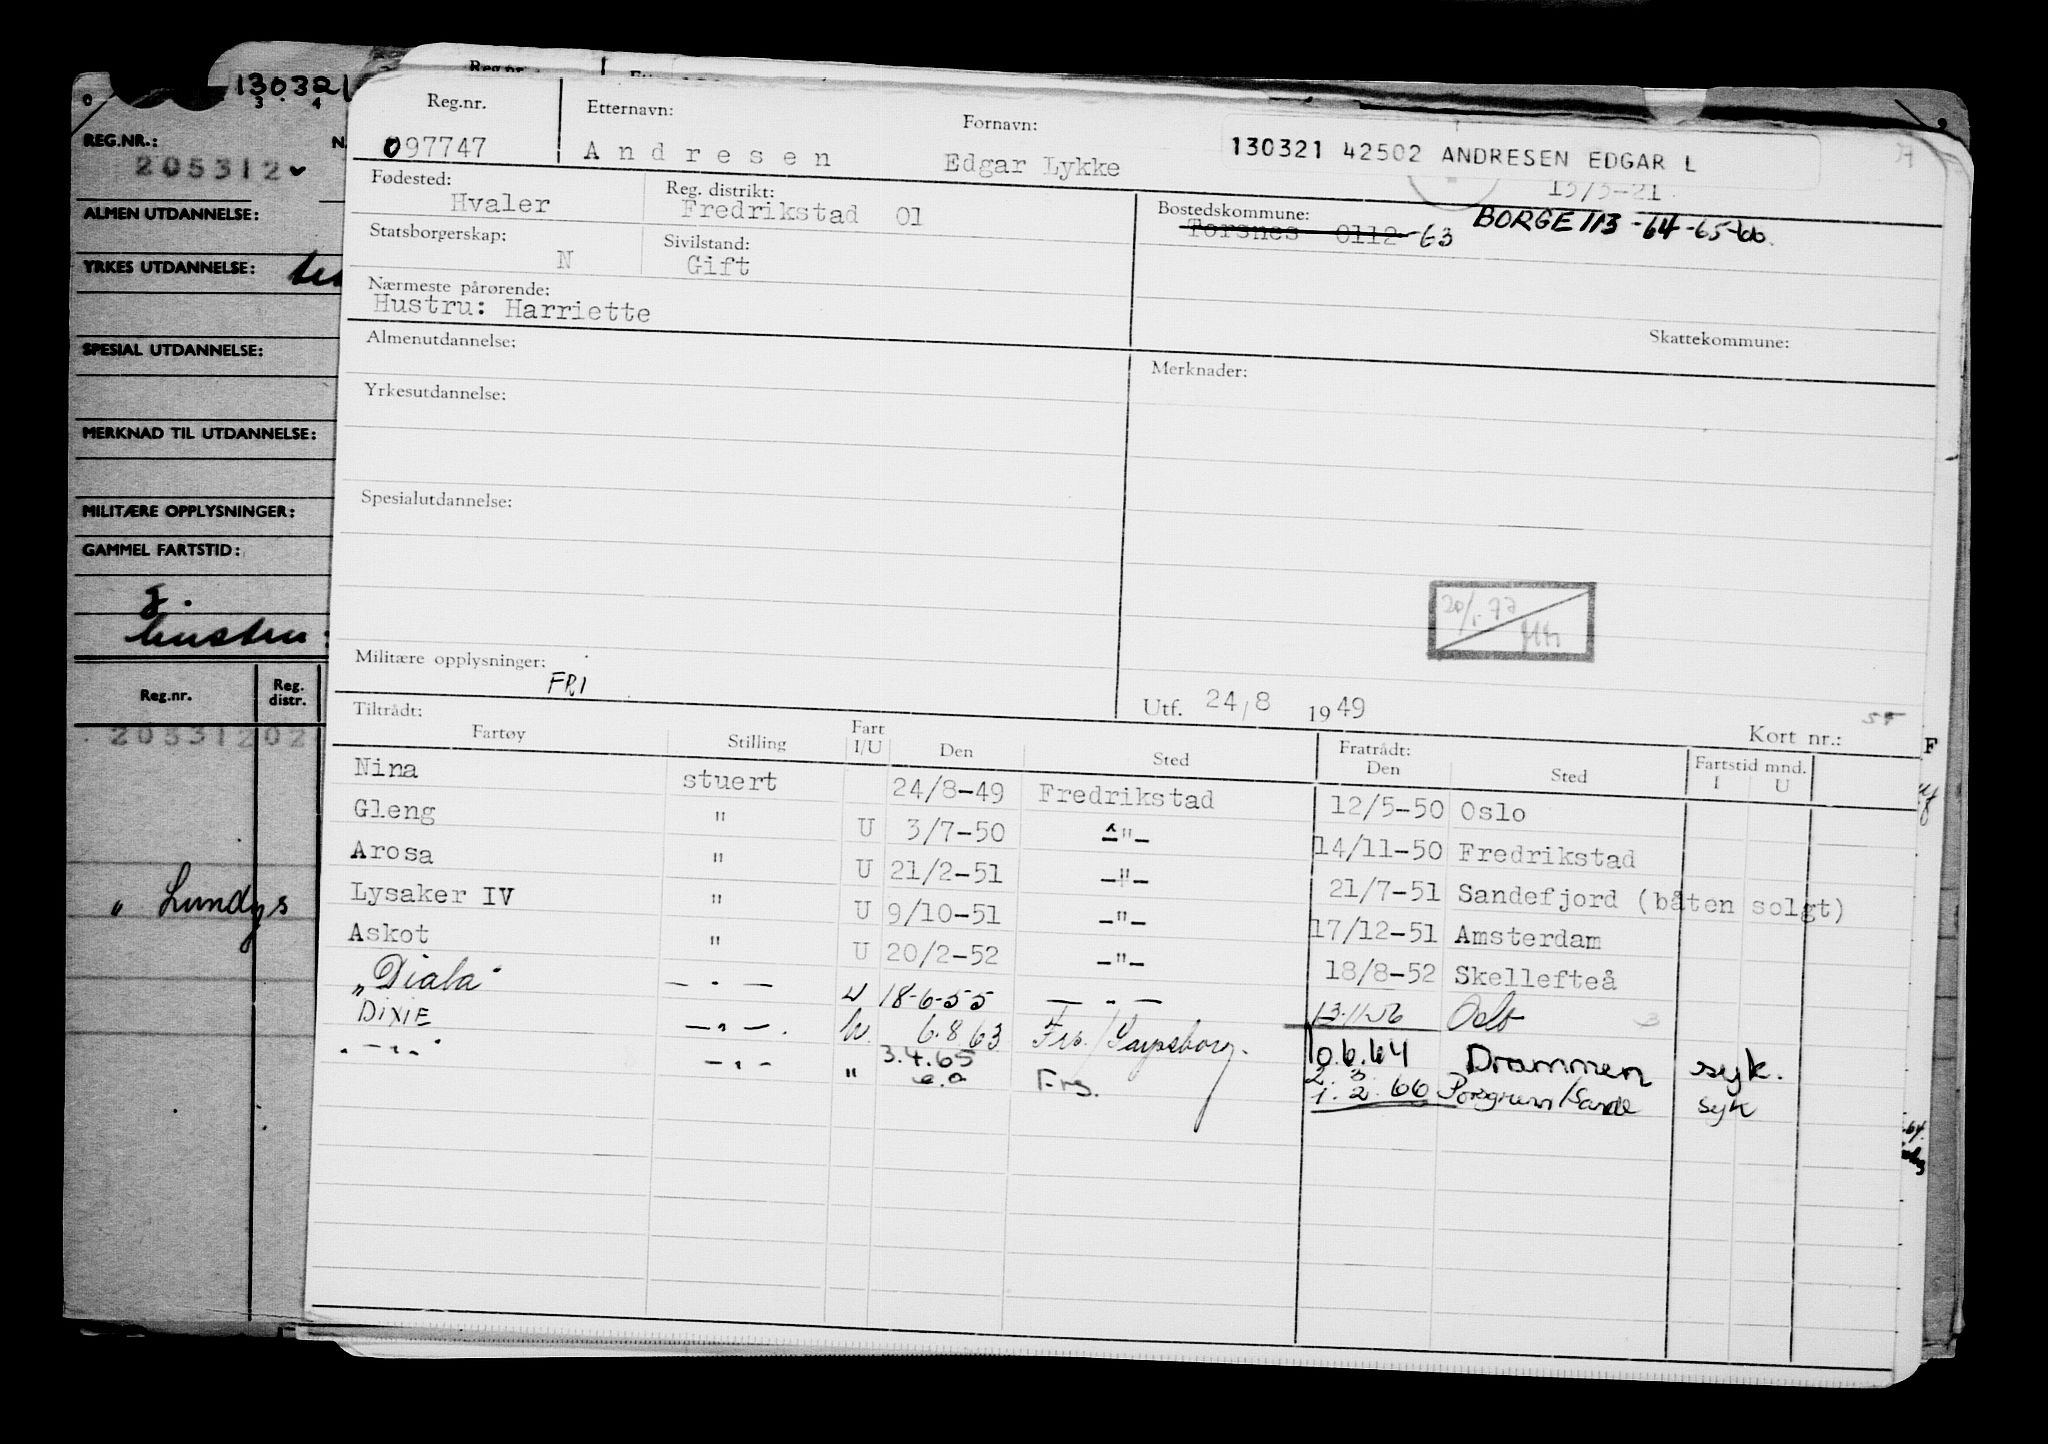 130321
3 4
REG.NR.:
205312
ALMEN UTDANNELSE:
YRKES UTDANNELSE:
SPESIAL UTDANNELSE:
MERKNAD TIL UTDANNELSE:
MILITÆRE OPPLYSNINGER:
GAMMEL FARTSTID:
g.
Reg.nr. Reg. distr.
20531202
" Lundys
Reg.nr. Etternavn: Fornavn:
097747 Andresen Edgar Lykke 130321 42502 ANDRESEN EDGAR L
13/3-21
Fødested: Reg. distrikt: Bostedskommune:
Hvaler Fredrikstad 01 Torsnes 0112-63 BORGE 113-64-65-66.
Statsborgerskap: Sivilstand:
N Gift
Nærmeste pårørende:
Hustru: Harriette
Skattekommune:
Almenutdannelse: Merknader:
Yrkesutdannelse:
Spesialutdannelse:
20/1-77
Militære opplysninger:
FRI
Utf. 24/8 1949
Kort nr.:
Tiltrådt: Fratrådt:
Fartøy Stilling Fart I/U Den Sted Den Sted Fartstid mnd. I U
Nina stuert 24/8-49 Fredrikstad 12/5-50 Oslo
Gleng " U 3/7-50 -"- 14/11-50 Fredrikstad
Arosa " U 21/2-51 -"- 21/7-51 Sandefjord (båten solgt)
Lysaker IV " U 9/10-51 -"- 17/12-51 Amsterdam
Askot " U 20/2-52 -"- 18/8-52 Skellefteå
"Diala" - " - U 18-6-55 - " - Oslo
DIXIE - " - U. 6.8.63 Frs./Sarpsborg. 10.6.64 Drammen syk.
- " - - " - " 3.4.65 Frs. 1.2.66 Porsgrunn/Sande syk